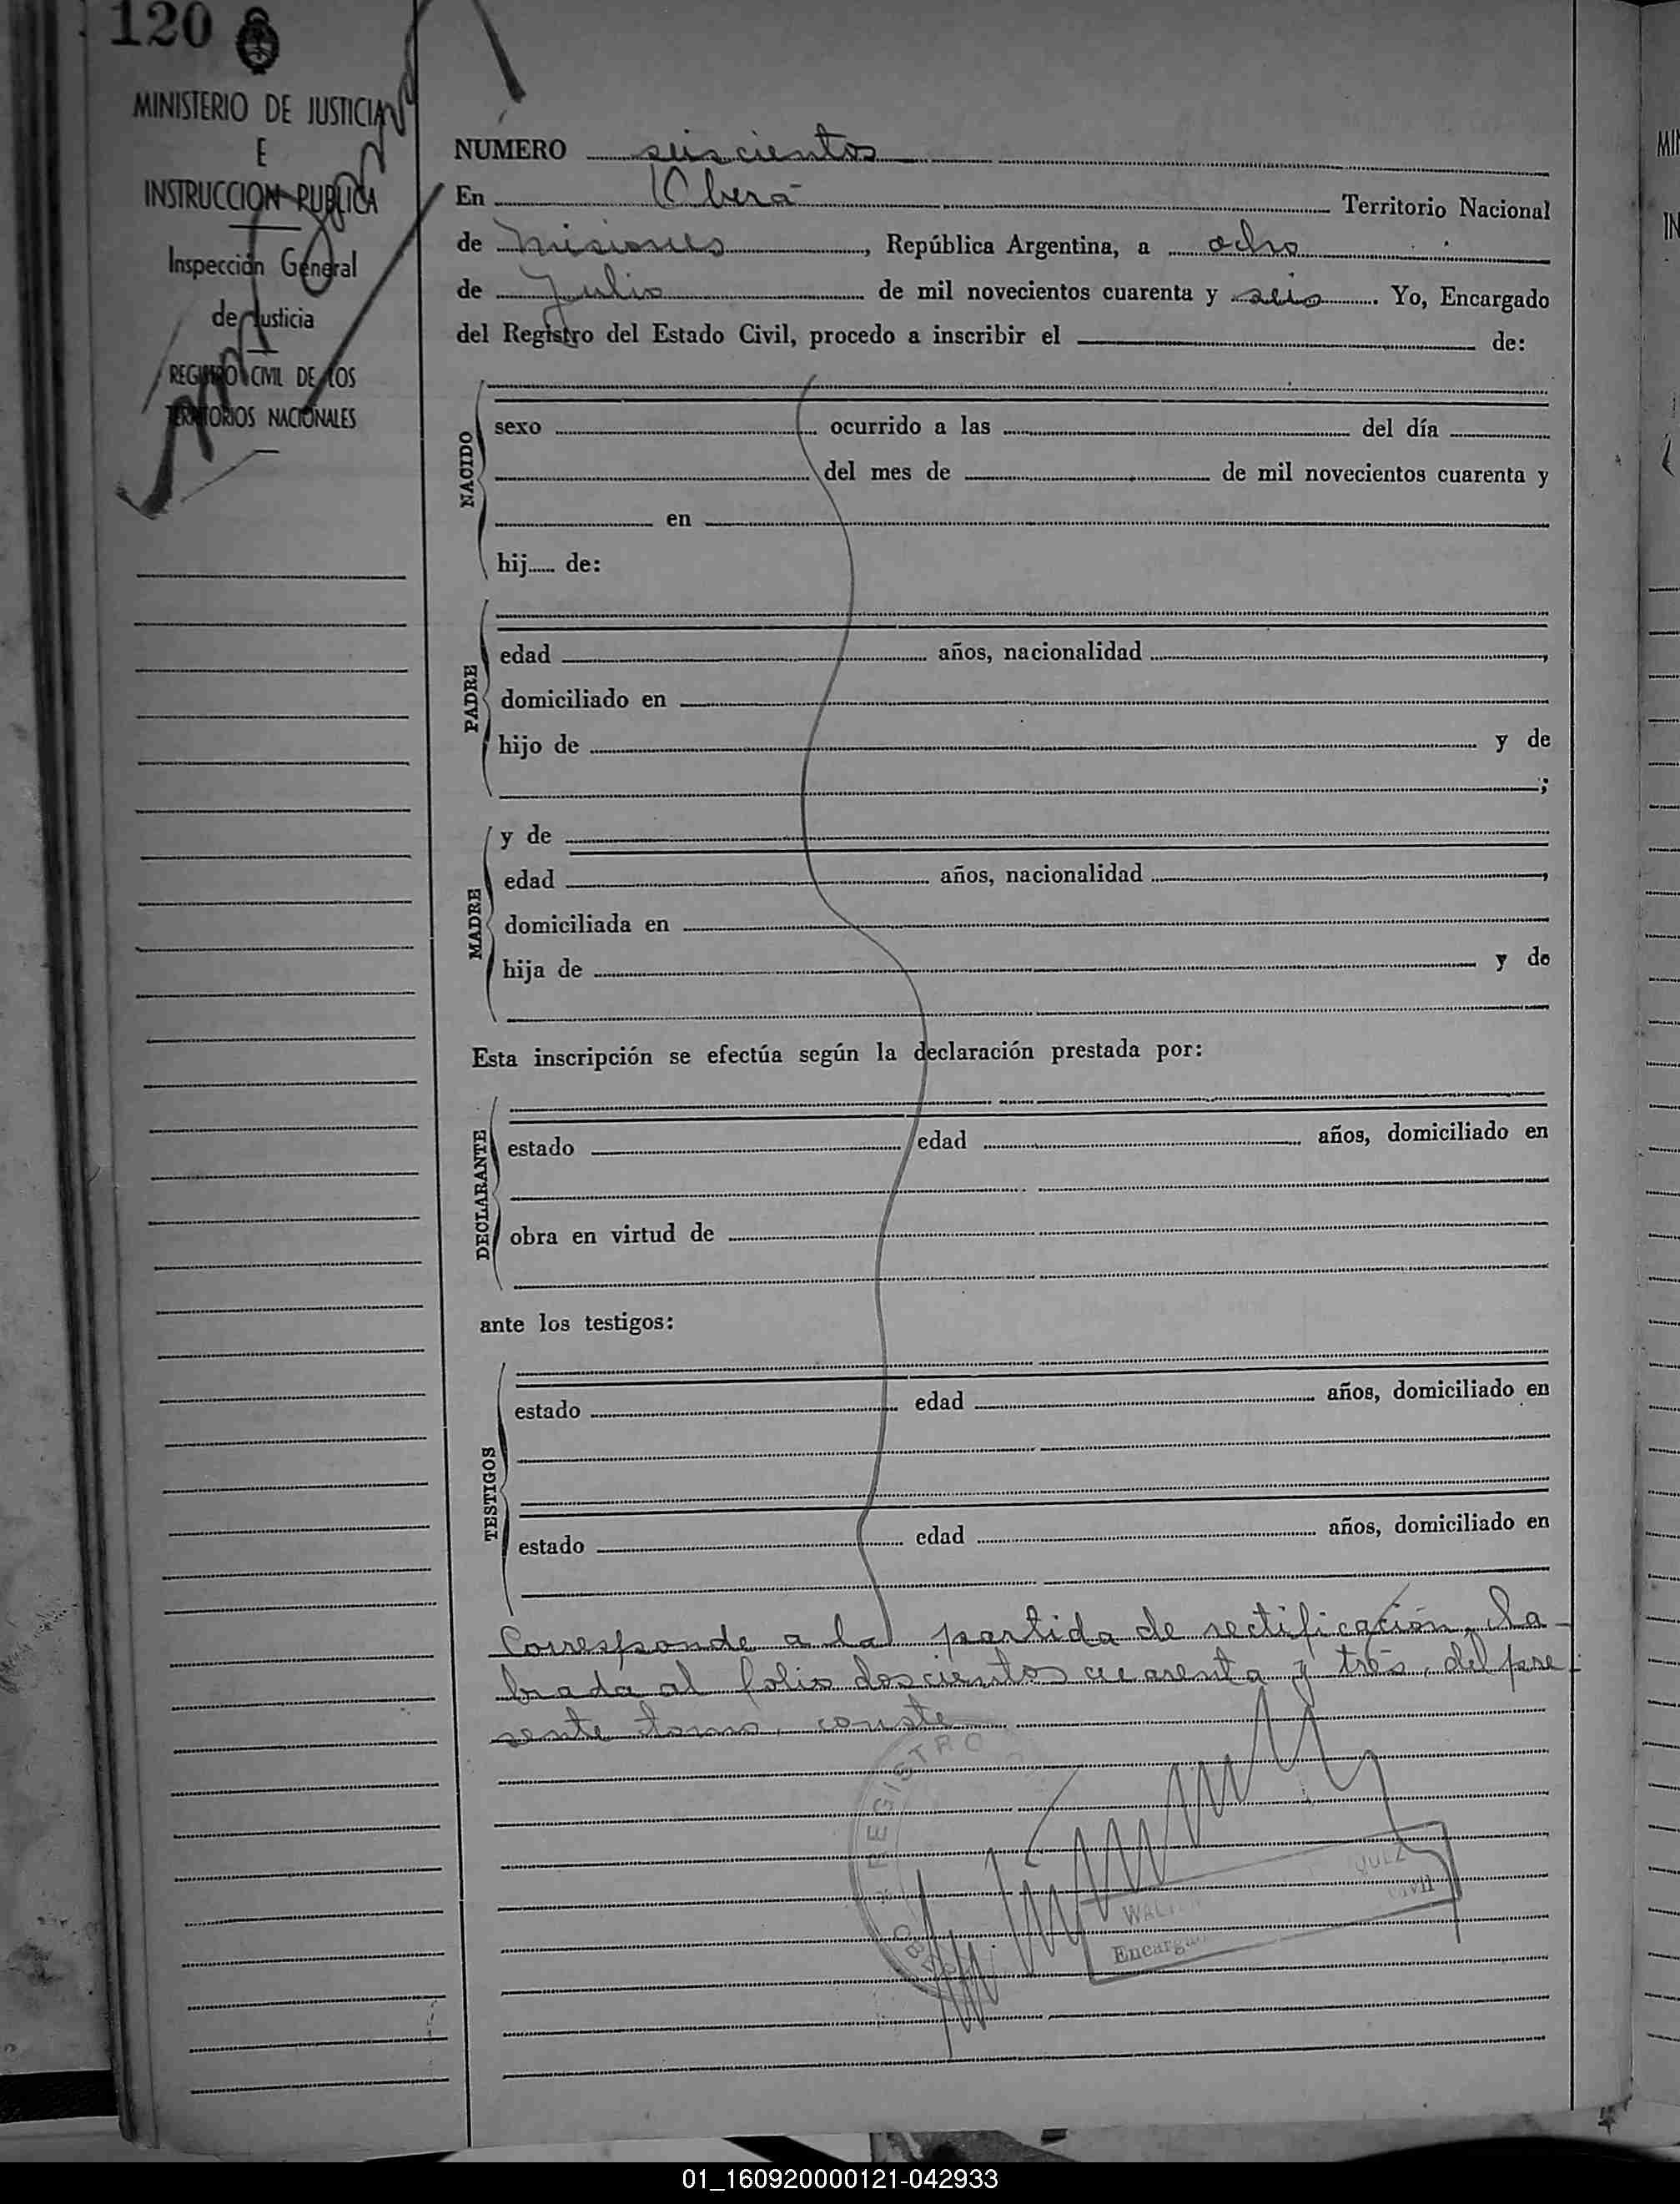 120
MINISTERIO DE JUSTICIA
E
INSTRUCCION PUBLICA
Inspección General
de Justicia
REGISTRO CIVIL DE LOS
TERRITORIOS NACIONALES
NUMERO seiscientos
En Oberá Territorio Nacional
de Misiones, República Argentina, a ocho
de Julio de mil novecientos cuarenta y seis. Yo, Encargado
del Registro del Estado Civil, procedo a inscribir el de:
NACIDO
sexo ocurrido a las del día
del mes de de mil novecientos cuarenta y
en
hij...... de:
PADRE
edad años, nacionalidad ,
domiciliado en
hijo de y de
;
MADRE
y de
edad años, nacionalidad ,
domiciliada en
hija de y de
Esta inscripción se efectúa según la declaración prestada por:
DECLARANTE
estado edad años, domiciliado en
obra en virtud de
ante los testigos:
TESTIGOS
estado edad años, domiciliado en
estado edad años, domiciliado en
Corresponde a la partida de rectificación, la-
brada al folio doscientos cuarenta y tres, del pre-
sente tomo, conste
REGISTRO
Encargado
Civil
01_160920000121-042933